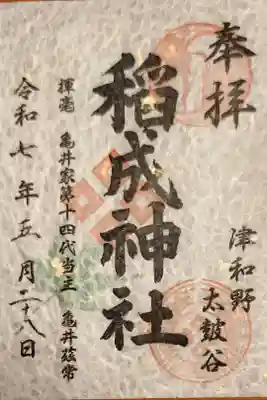 奉拝
津和野
太皷谷
稲成神社
揮毫 亀井家第十四代当主 亀井茲常
令和七年五月二十八日